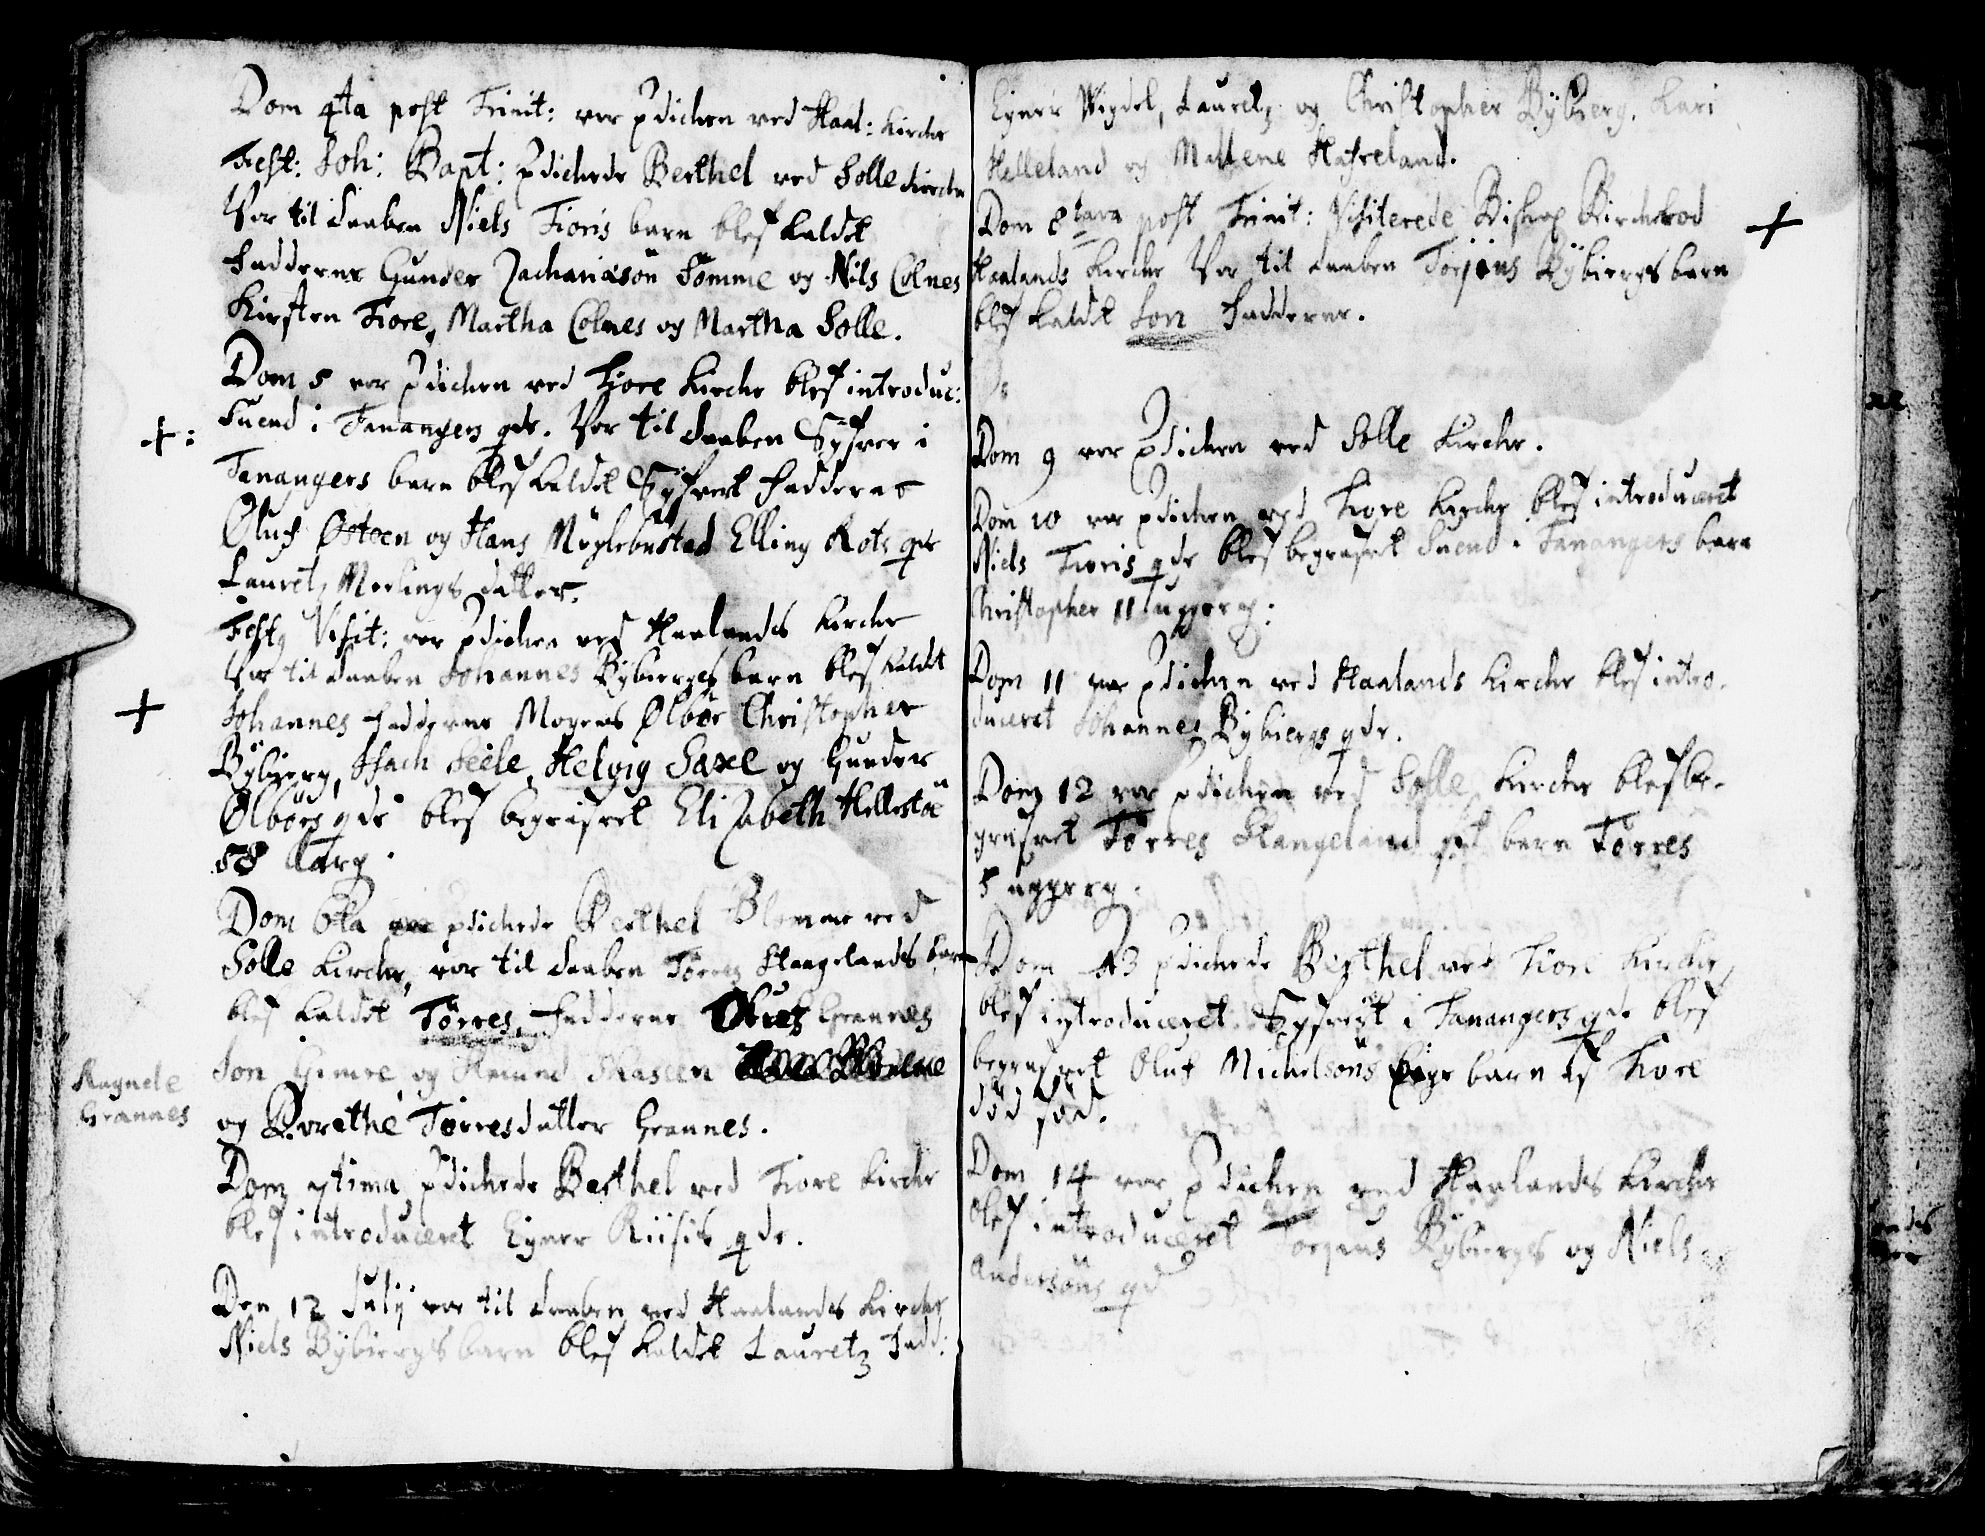 Dom 4ta post Trinit: var pdichen ved Haal: Kirche
Fest: Joh: Bapt: pdichede Berthel ved Solle Kirche
Var til daaben Niels Fioris barn blef kaldet
Fadderne Gunder Zachariasön Sömme og Nils Colnes
Kirsten Fiore, Martha Colnes og Martha Solle.
Dom 5 var pdichen ved Fiore Kirche blef introduc:
+: Suend i Tanangers qde. Var til daaben Syfver i
Tanangers barn blef kaldet Syfvert Fadderne
Oluf Osteen og Hans Möglebustad Elling Rots qde
Lauretz Meelings datter.
Festo Visit: var pdichen ved Haalands Kirche
Var til daaben Johannes Bybiergs barn blef kaldet
+ Johannes Fadderne Mogens Ölbör Christopher
Bybierg, Isach Seele, Helvig Saxe og Gunder
Ölbörs qde blef begrafvet Elizabeth Hellestöe
58 aarg.
Dom 6ta pdichede Berthel Blomme ved
Solle Kirche, var til daaben Törres Stangelands barn
blef kaldet Törres, Fadderne Oluf Grannes
Jon Gimre og Amund Skaseen
Ragnele
Grannes
og Dorethe Törresdatter Grannes.
Dom 7tima pdichede Berthel ved Fiore Kirche
blef introduceret Eyner Riisis qde.
Den 12 July var til daaben ved Haalands Kirche
Niels Bybiergs barn blef kaldet Lauretz Fadd:
Eyner Wigdel, Lauretz og Christopher Bybierg, Kari
Helleland og Mallene Hafreland.
Dom 8tava post Trinit: Visiterede Biskop Birckerod +
Haalands Kirche Var til daaben Torjöns Bybiergs barn
blef kaldet Jon Fadderne.
Dom 9 var pdichen ved Solle Kirche.
Dom 10 var pdichen ved Fiore Kirche blef introduceret
Niels Fioris qde blef begrafvet Suend i Tanangers barn
Christopher 11 uggerg:
Dom 11 var pdichen ved Haalands Kirche blef intro-
duceret Johannes Bybiergs qde.
Dom 12 var pdichen ved Solle Kirche blef be-
grafvet Törres Stangeland barn Törres
5 uggerg.
Dom 13 pdichede Berthel ved Fiore Kirche,
blef introduceret Syfvert i Tanangers qde blef
begrafvet Oluf Michelsöns pige barn af Fiore
död föd.
Dom 14 var pdichen ved Haalands Kirche
blef introduceret Torjöns Bybiergs og Niels
Andersöns qd